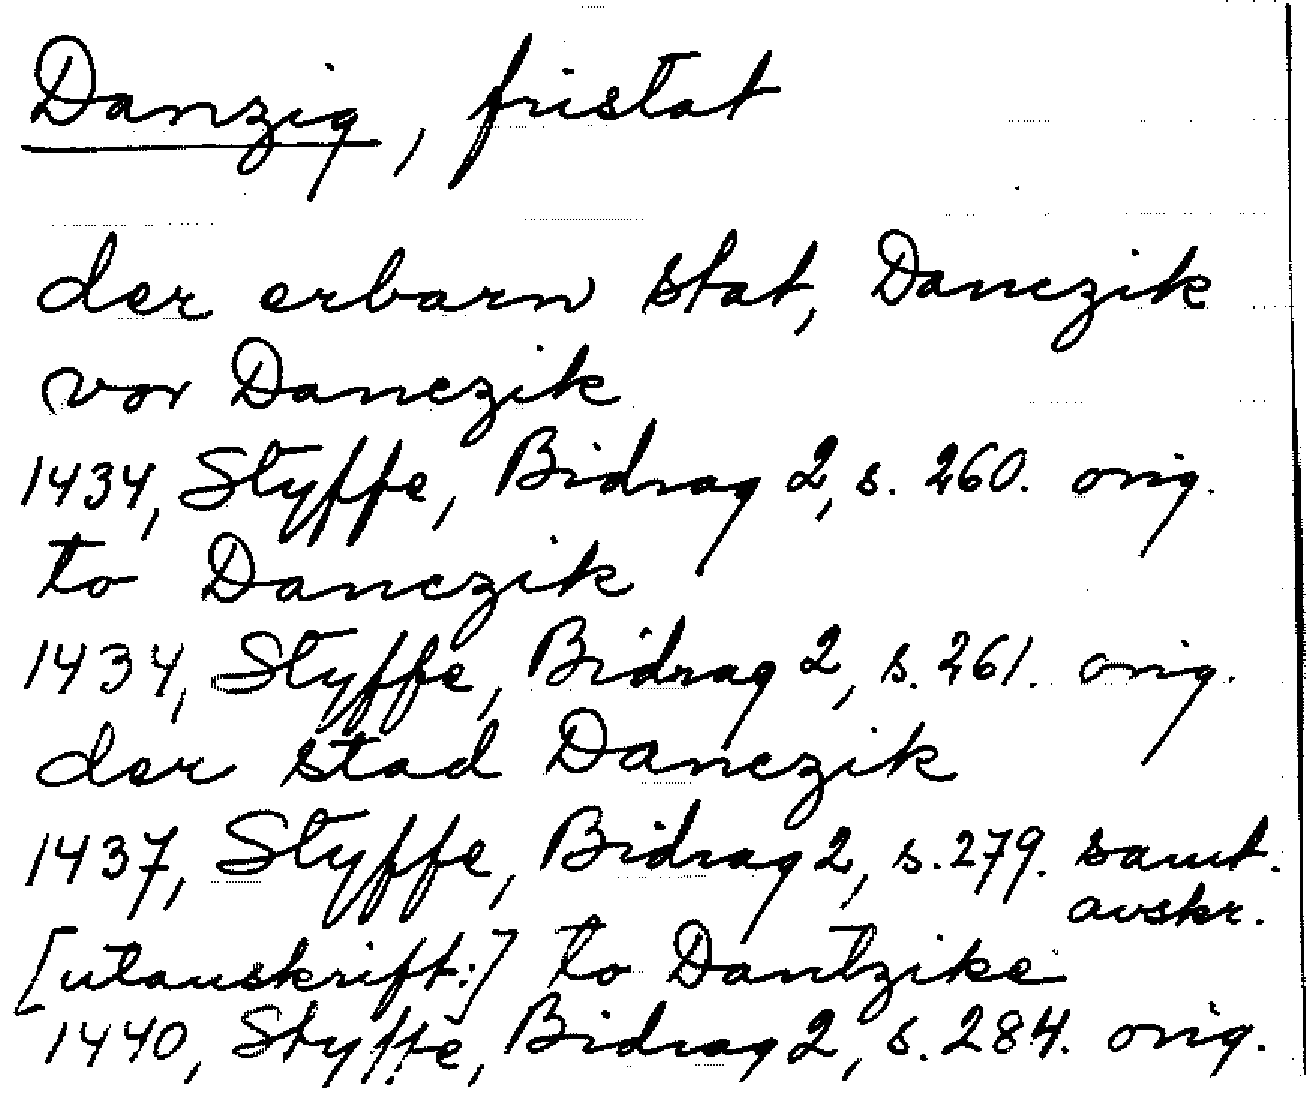 Danzig, fristat
der erbarn stat, Danczik
vor Danczik
1434, Styffe, Bidrag 2, s. 260. orig.
to Danczik
1434, Styffe, Bidrag 2, s. 261. orig.
der stad Danczik
1437, Styffe, Bidrag 2, s. 279. samt.
avskr.
[utanskrift:] to Dantzike
1440, Styffe, Bidrag 2, s. 284. orig.